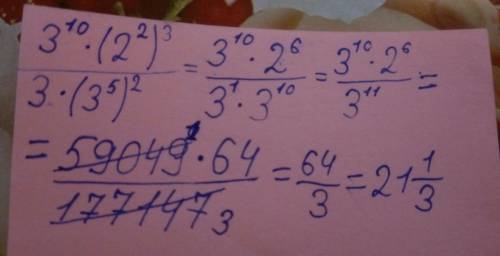 \frac{3^{10} \cdot (2^2)^3}{3 \cdot (3^5)^2} = \frac{3^{10} \cdot 2^6}{3^1 \cdot 3^{10}} = \frac{3^{10} \cdot 2^6}{3^{11}} =
= \frac{\cancel{59049}^1 \cdot 64}{\cancel{177147}_3} = \frac{64}{3} = 21\frac{1}{3}